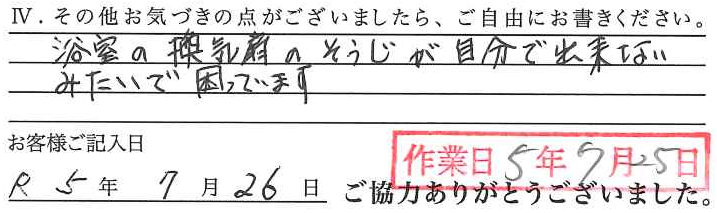 Ⅳ．その他お気づきの点がございましたら、ご自由にお書きください。
浴室の換気扇のそうじが自分で出来ない
みたいで困っています
お客様ご記入日
作業日 5年7月25日
R 5年 7月26日 ご協力ありがとうございました。